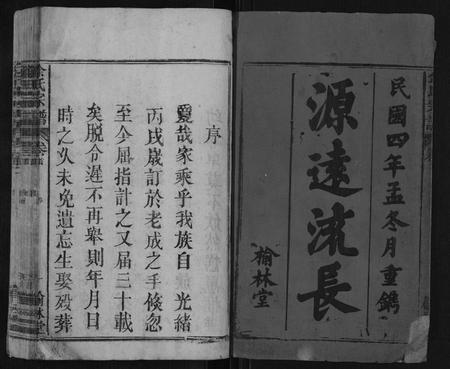 民國四年孟冬月重鐫
源遠流長
榆林堂
序
䝿哉家乘乎我族自 光緒
丙戌歲訂於老成之手倐忽
至今屈指計之又届三十載
矣脱令遲不再舉則年月日
時之久未免遺忘生娶殁葬
余氏家譜
榆林堂